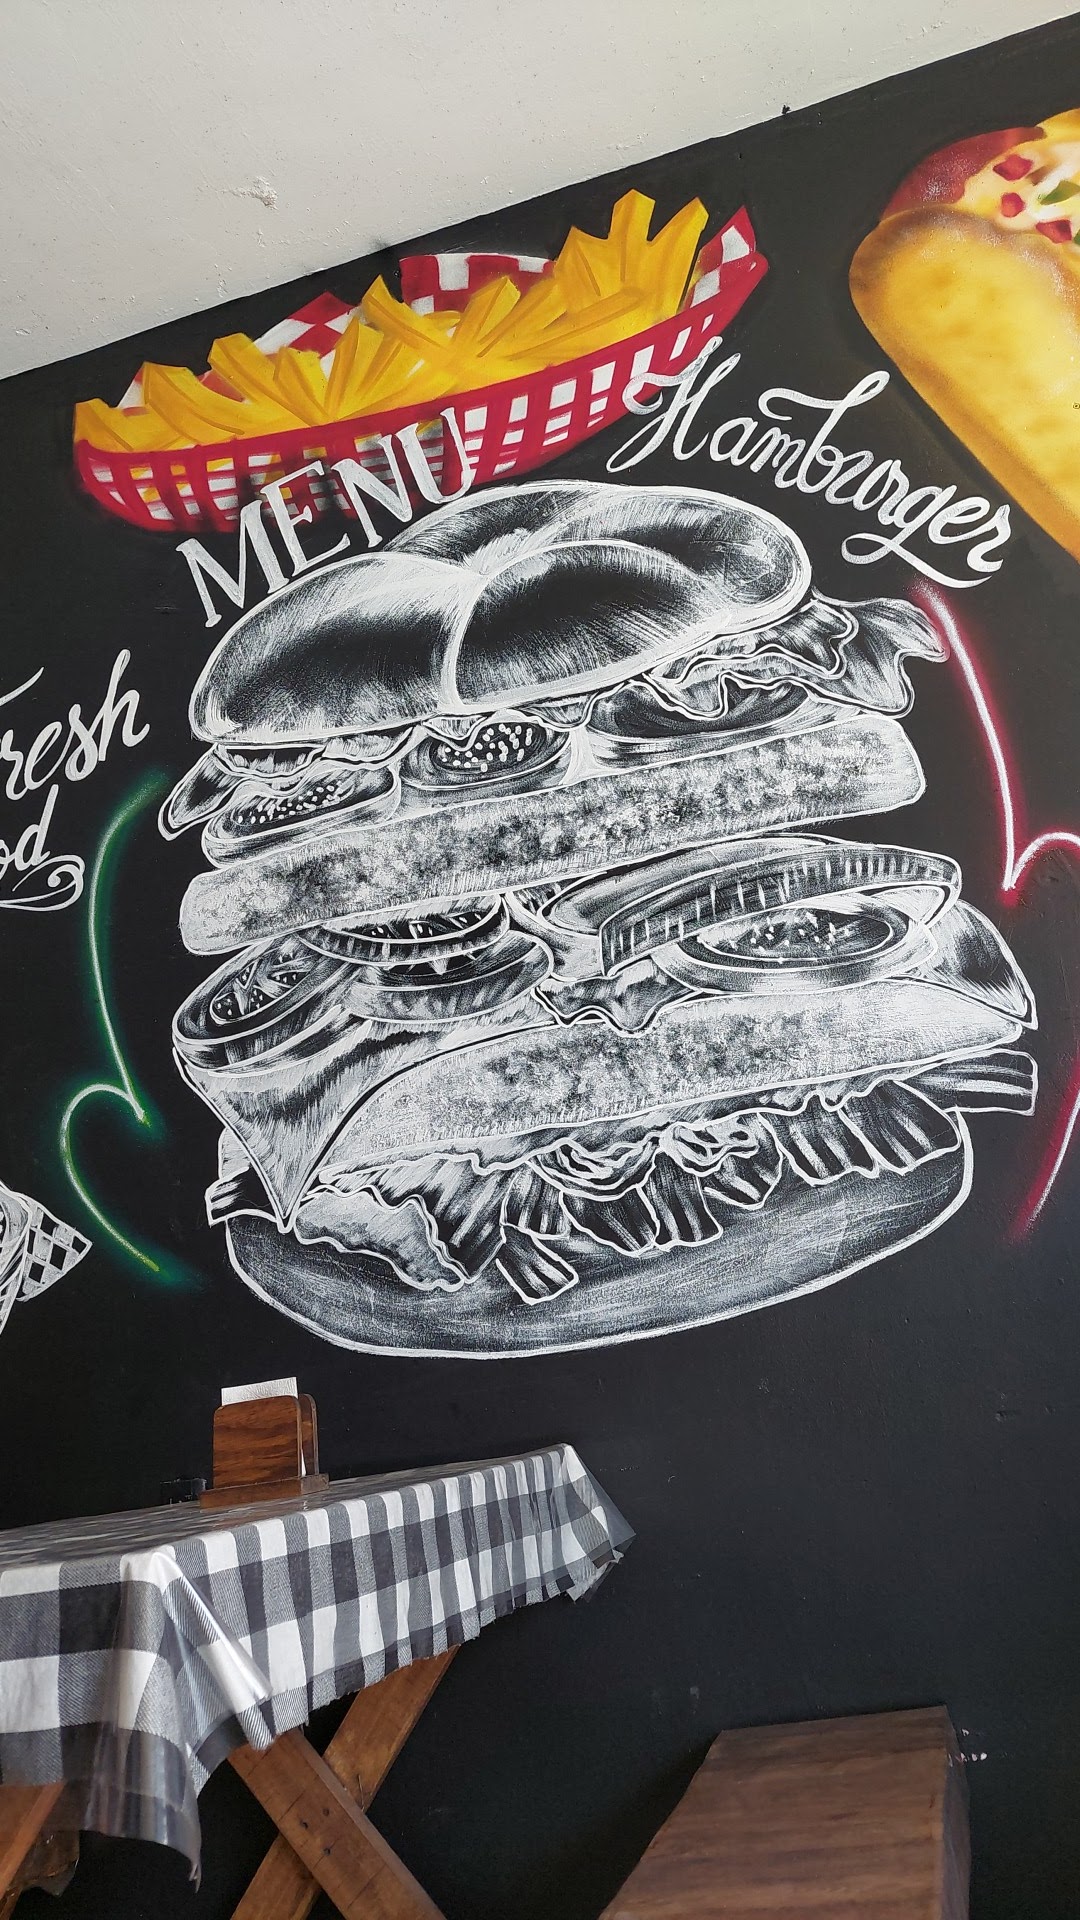 MENU
Hamburger
Fresh